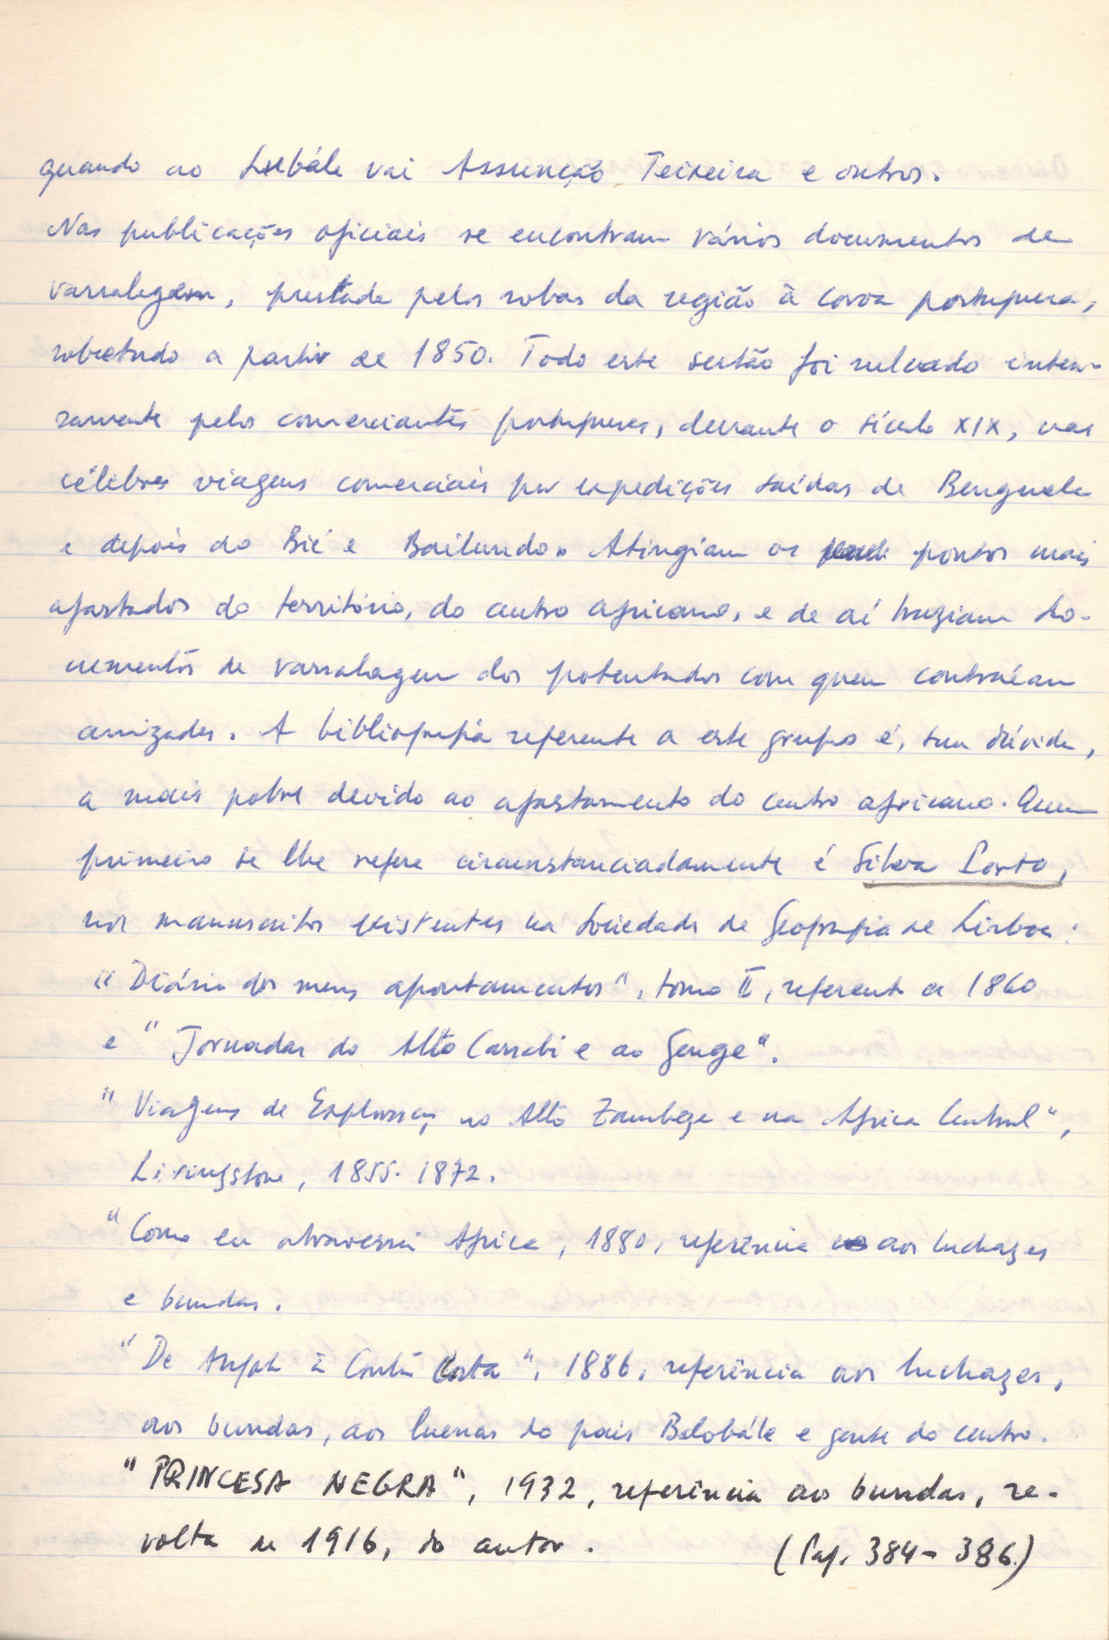 quando ao Lubále vai Assunção Teixeira e outros.
Nas publicações oficiais se encontram vários documentos de
vassalagem, prestada pelos sobas da região à coroa portuguesa,
sobretudo a partir de 1850. Todo este sertão foi sulcado inten-
samente pelos comerciantes portugueses, durante o século XIX, nas
célebres viagens comerciais por expedições saídas de Benguela
e depois do Bié e Bailundo. Atingiam os pontos mais
afastados do território, do centro africano, e de aí traziam do-
cumentos de vassalagem dos potentados com quem contraíam
amizades. A bibliografia referente a este grupo é, sem dúvida,
a mais pobre devido ao afastamento do centro africano. Quem
primeiro se lhe refere circunstanciadamente é Silva Porto,
nos manuscritos existentes na Sociedade de Geografia de Lisboa:
"Diário dos meus apontamentos", tomo II, referente a 1860
e "Jornadas do Alto Cassabi e ao Genge".
"Viagens de Exploração no Alto Zambeze e na Africa Central",
Livingstone, 1855-1872.
"Como eu atravessei Africa, 1880, referência aos luchazes
e bundas.
"De Angola à Contra Costa", 1886, referência aos luchazes,
aos bundas, aos luenas do país Belobále e gente do centro.
"PRINCESA NEGRA", 1932, referência aos bundas, re-
volta de 1916, do autor. (Pag. 384-386)